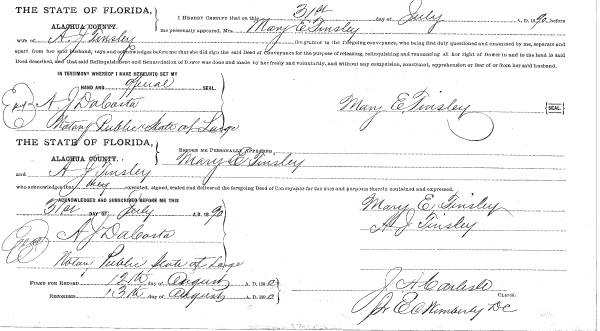 THE STATE OF FLORIDA,
ALACHUA COUNTY.
I HEREBY CERTIFY that on this 31st day of July A. D. 90, before
me personally appeared, Mrs. Mary E Tinsley
wife of A. J. Tinsley the grantor in the foregoing conveyance, who being first duly questioned and examined by me, separate and
apart from her said husband, says and acknowledges before me that she did sign the said Deed of Conveyance for the purpose of releasing, relinquishing and renouncing all her right of Dower in and to the land in said
Deed described, and that said Relinquishment and Renunciation of Dower was done and made by her freely and voluntarily, and without any compulsion, constraint, apprehension or fear of or from her said husband.
IN TESTIMONY WHEREOF I HAVE HEREUNTO SET MY
HAND AND official SEAL.
A J DaCosta
Mary E. Tinsley {SEAL}
Notary Public State at Large
THE STATE OF FLORIDA,
ALACHUA COUNTY.
BEFORE ME PERSONALLY APPEARED
Mary E Tinsley
and A J Tinsley
who acknowledges that they executed, signed, sealed and delivered the foregoing Deed of Conveyance for the uses and purposes therein contained and expressed.
ACKNOWLEDGED AND SUBSCRIBED BEFORE ME THIS
31st DAY OF July A.D. 1890
Mary E. Tinsley
A J Tinsley
A J DaCosta
Notary Public State at Large
FILED FOR RECORD 12th day of August A. D. 1890
RECORDED 13th day of August A. D. 1890
J A Carlisle
CLERK.
Pr E C Wimberly DC